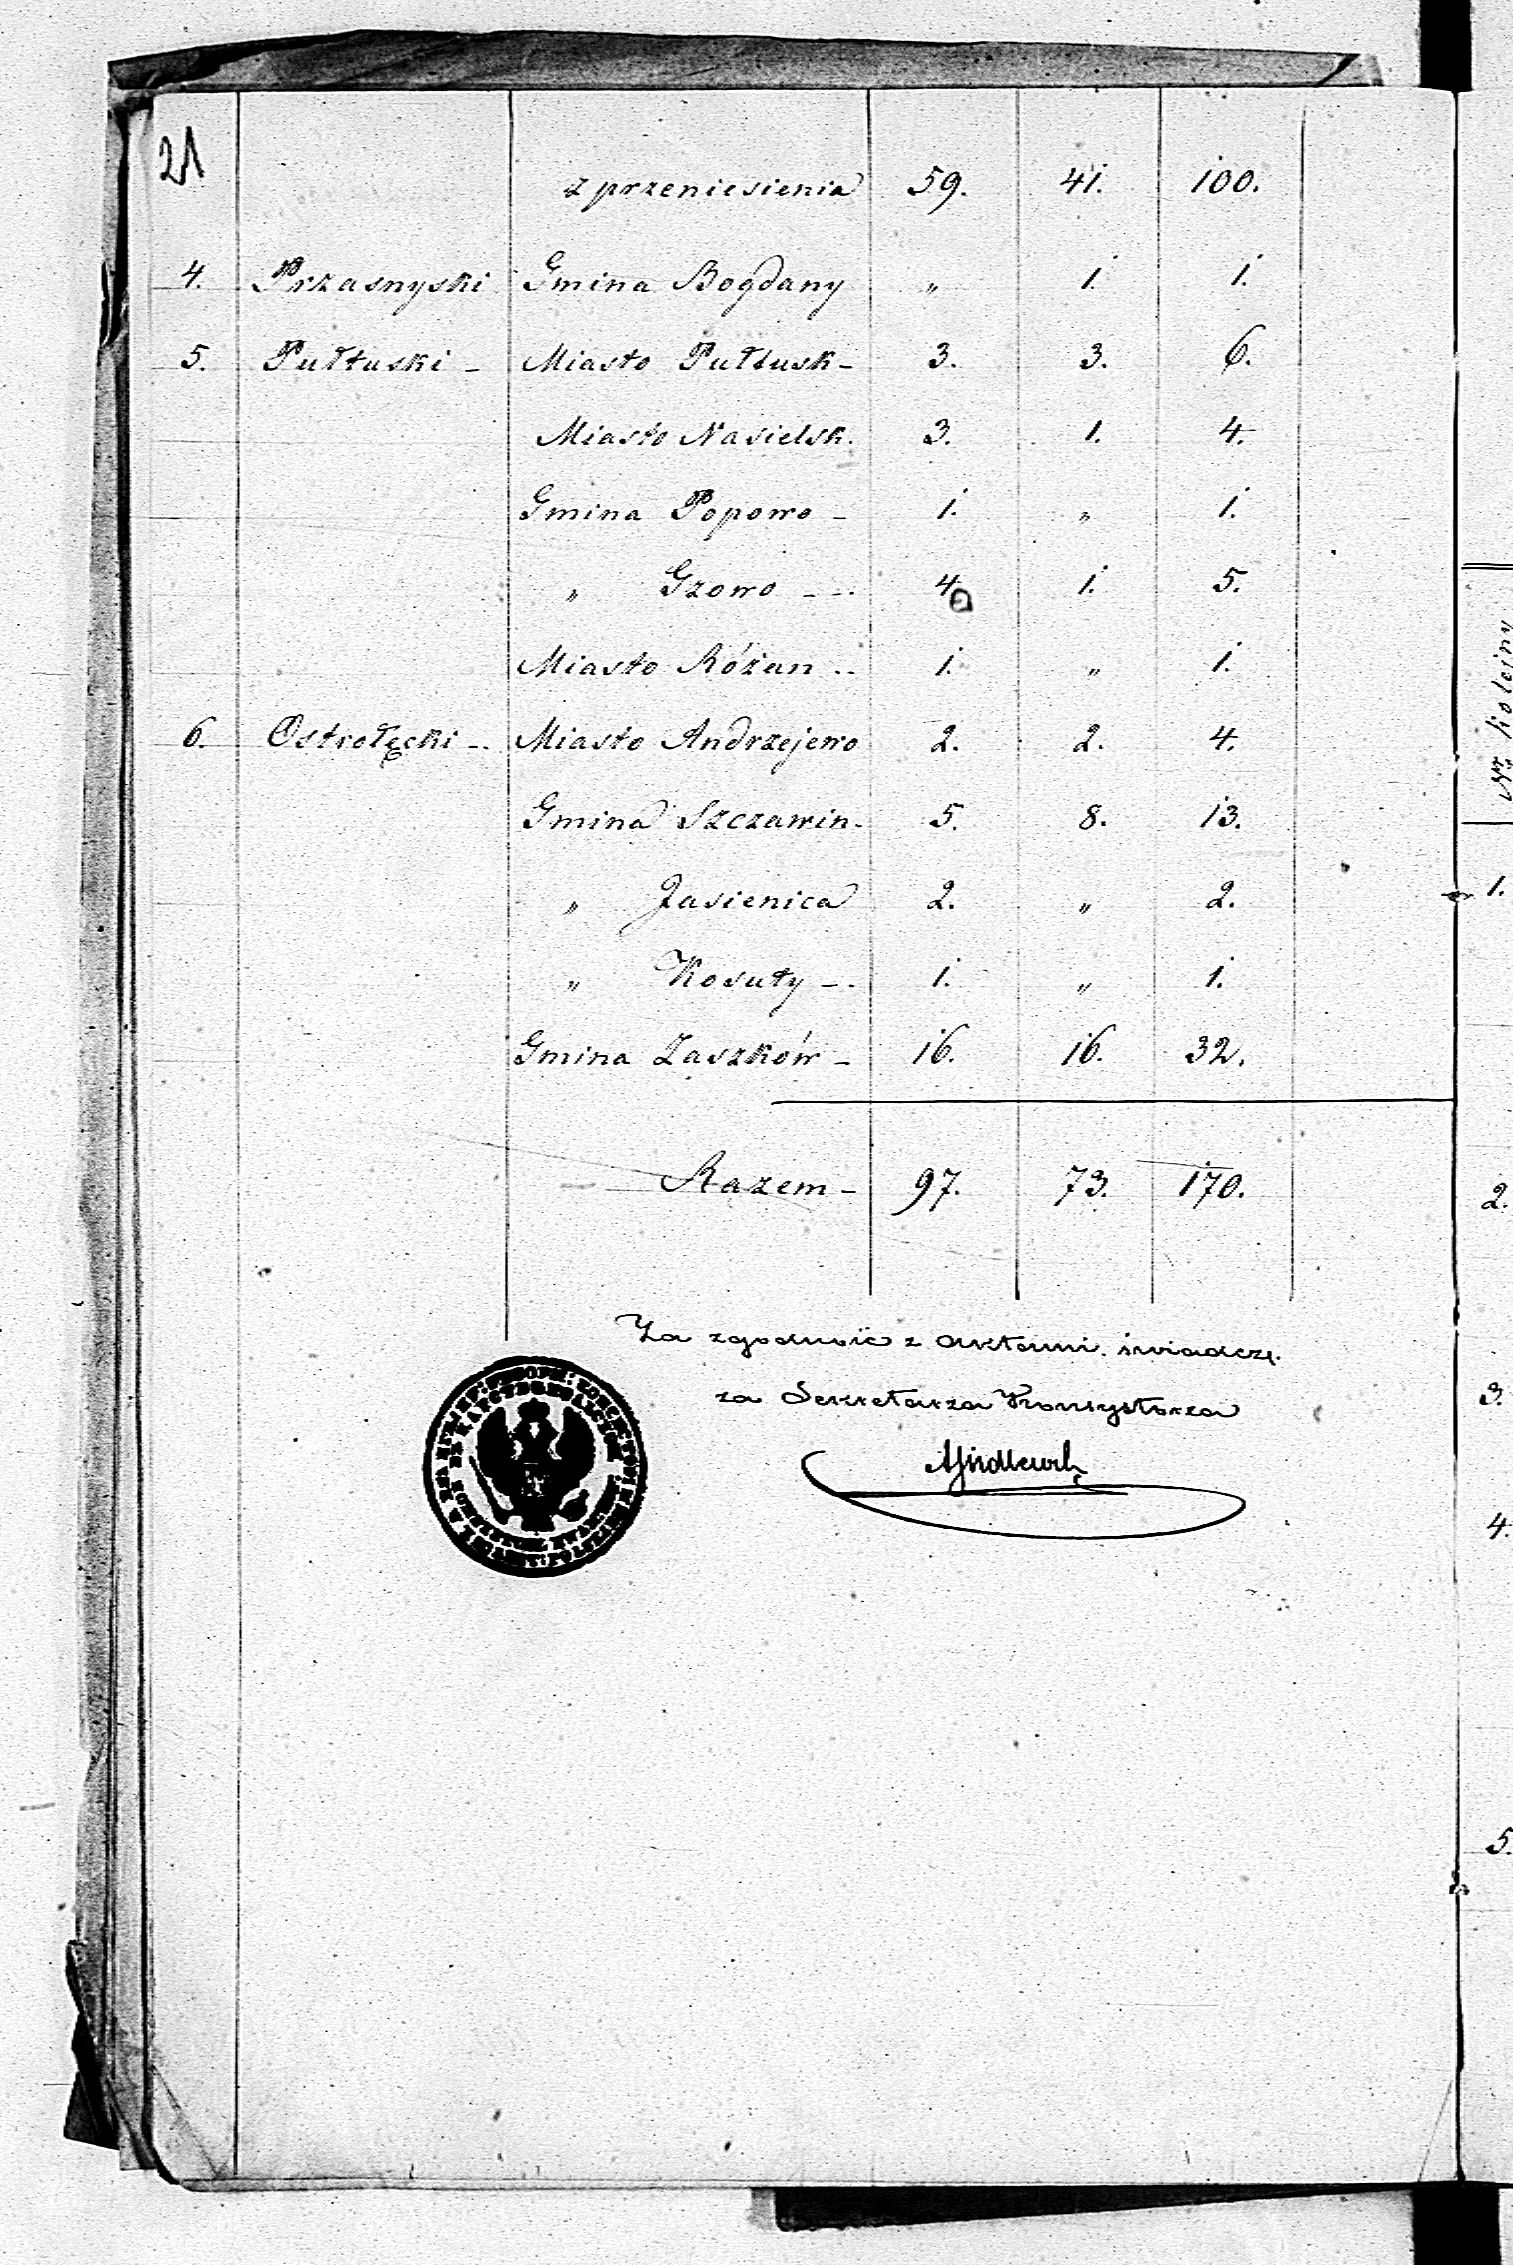 21
z przeniesienia 59. 41. 100.
4. Przasnyski Gmina Bogdany „ 1. 1.
5. Pułtuski - Miasto Pułtusk - 3. 3. 6.
Miasto Nasielsk. 3. 1. 4.
Gmina Popowo - 1. „ 1.
„ Gzowo - - 4. 1. 5.
Miasto Różan - - 1. „ 1.
6. Ostrołęcki - - Miasto Andrzejewo 2. 2. 4.
Gmina Szczawin - 5. 8. 13.
„ Jasienica 2. „ 2.
„ Kosuty - . 1. „ 1.
Gmina Zaszków - 16. 16. 32.
Razem - 97. 73. 170.
Za zgodność z aktami świadczę.
za Sekretarza Konsystorza
Nr kolejny
1.
2.
3.
4.
5.